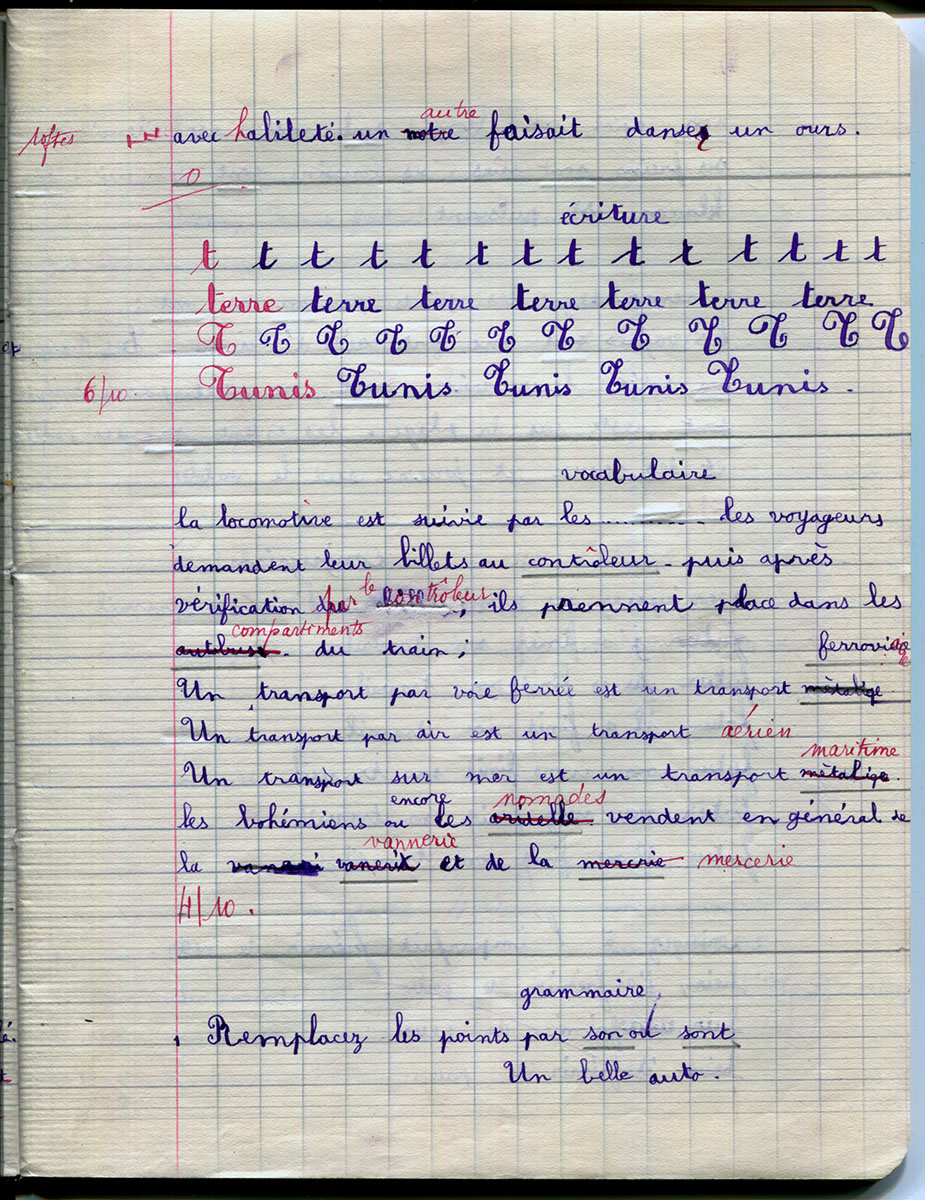 autre
avec halileté. un notre faisait danser un ours.
0
écriture
t t t t t t t t t t t t t
terre terre terre terre terre terre terre
T T T T T T T T T T T T
6/10. Tunis Tunis Tunis Tunis Tunis.
vocabulaire
la locomotive est suivie par les ............ les voyageurs
demandent leur billets au contrôleur. puis après
vérification par le contrôleur; ils prennent place dans les
compartiments
autobus. du train; ferroviaire
Un transport par voie ferrée est un transport métalige
Un transport par air est un transport aérien
maritime
Un transport sur mer est un transport métalige.
encore nomades
les bohémiens ou les vendent en général de
vannerie
la vanerix et de la mercrie mercerie
4/10.
grammaire
Remplacez les points par son ou sont
Un belle auto.